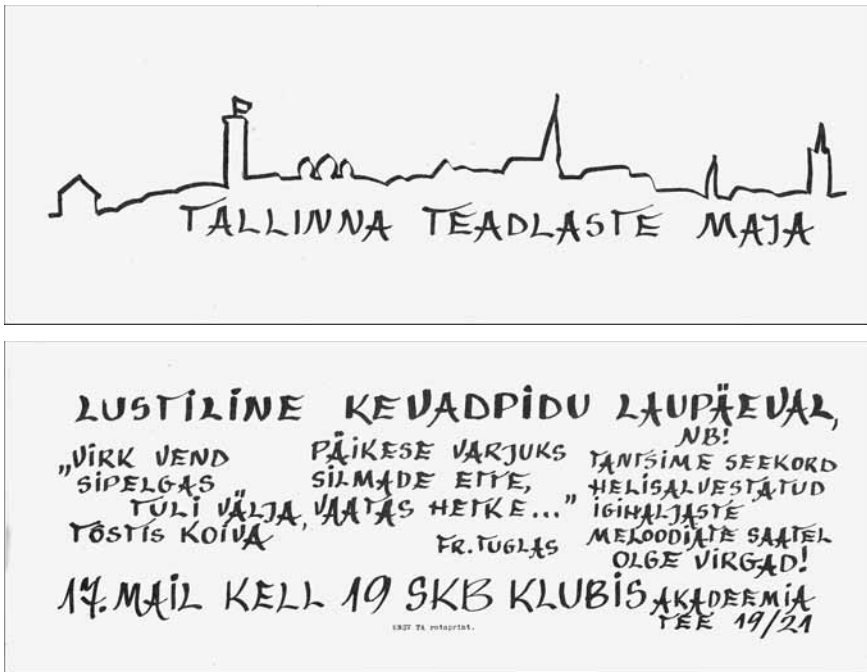 TALLINNA TEADLASTE MAJA
LUSTILINE KEVADPIDU LAUPÄEVAL,
„VIRK VEND
SIPELGAS
TULI VÄLJA,
TÕSTIS KOIVA
PÄIKESE VARJUKS
SILMADE ETTE,
VAATAS HETKE..."
FR. TUGLAS
NB!
TANTSIME SEEKORD
HELISALVESTATUD
IGIHALJASTE
MELOODIATE SAATEL
OLGE VIRGAD!
17. MAIL KELL 19 SKB KLUBIS AKADEEMIA
TEE 19/21
ENSV TA rotaprint.